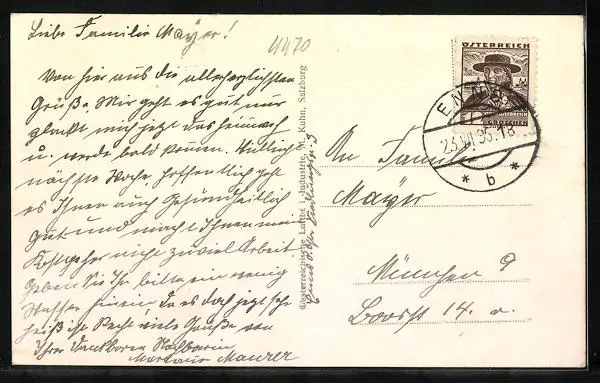 Liebe Familie Mayer!
4470
Von hier aus die allerherzlichsten
Grüße. Mir geht es gut nur
plagt mich jetzt das Heimweh
u. werde bald kommen. Vielleicht
nächste Woche. Hoffentlich geht
es Ihnen auch Gesundheitlich
gut und macht Ihnen mein
nicht zuviel Arbeit.
Geben Sie Ihr bitte ein wenig
Wasser hinein da es doch jetzt sehr
heiß ist. Recht viele Grüße von
Ihrer dankbaren Nachbarin
Maurer
Oesterreichische Luftbild-Industrie, M. Kuhn, Salzburg
ÖSTERREICH
GROSCHEN
ENNS
23.VI.36.18
* b *
An Familie
Mayer
München 9
14. a.